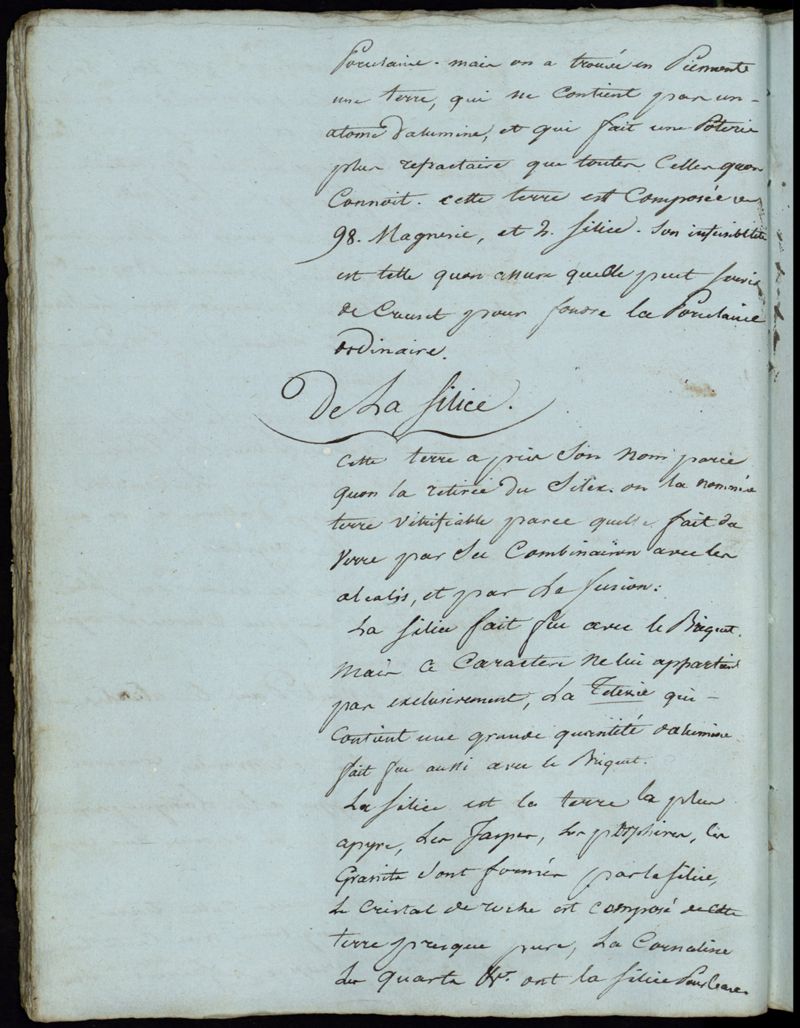 Porcelaine. mais on a trouvé en Piemonte
une terre, qui ne Contient pas un-
atome d'alumine, et qui fait une Poterie
plus refractaire que toutes Celles quon
Connoit. cette terre est Composée de
98. Magnesie, et 2. silice. Son infusibilité
est telle quon assure quelle peut servir
de Creuset pour fondre la Porcelaine
ordinaire.
De La silice.
Cette terre a pris Son Nom parce
quon la retirée du Silex. on la nommée
terre Vitrifiable parce quelle fait du
Verre par Sa Combinaison avec les
alcalis, et par La fusion:
La silice fait feu avec le Briquet.
Mais Ce Caractere Ne lui appartient
pas exclusivement, La Telesie qui-
Contient une grande quantité d'alumine
fait feu aussi avec le Briquet.
La silice est la terre la plus
apyre, Les Jaspes, Les porphires, les
Granits Sont formés par la silice,
Le Cristal de roche est composé de cette
terre presque pure, La Cornaline
Les quarts &c. ont la silice Pour base.